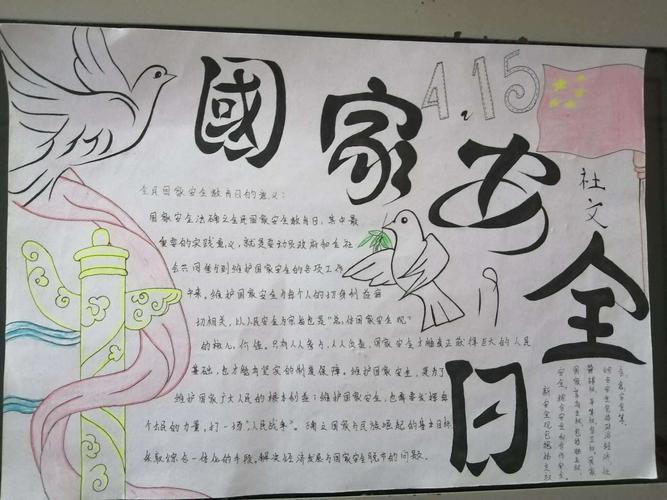 國家安全日
4.15
社文
全民国家安全教育日的意义：
国家安全法确立全民国家安全教育日，其中最
重要的实践意义，就是要动员政府和全社
会共同参与到维护国家安全的各项工作
中来。维护国家安全与每个人的切身利益密
切相关，以人民安全为宗旨也是“总体国家安全观”
的核心价值。只有人人参与，人人负责，国家安全才能真正获得巨大的人民
基础，也才能有坚实的制度保障。维护国家安全，是为了
维护国家广大人民的根本利益；维护国家安全，也需要发挥每
个公民的力量，打一场“人民战争”。确立国家与民族崛起的
采取综合一体化的手段，解决经济发展与国家安全脱节的问题。